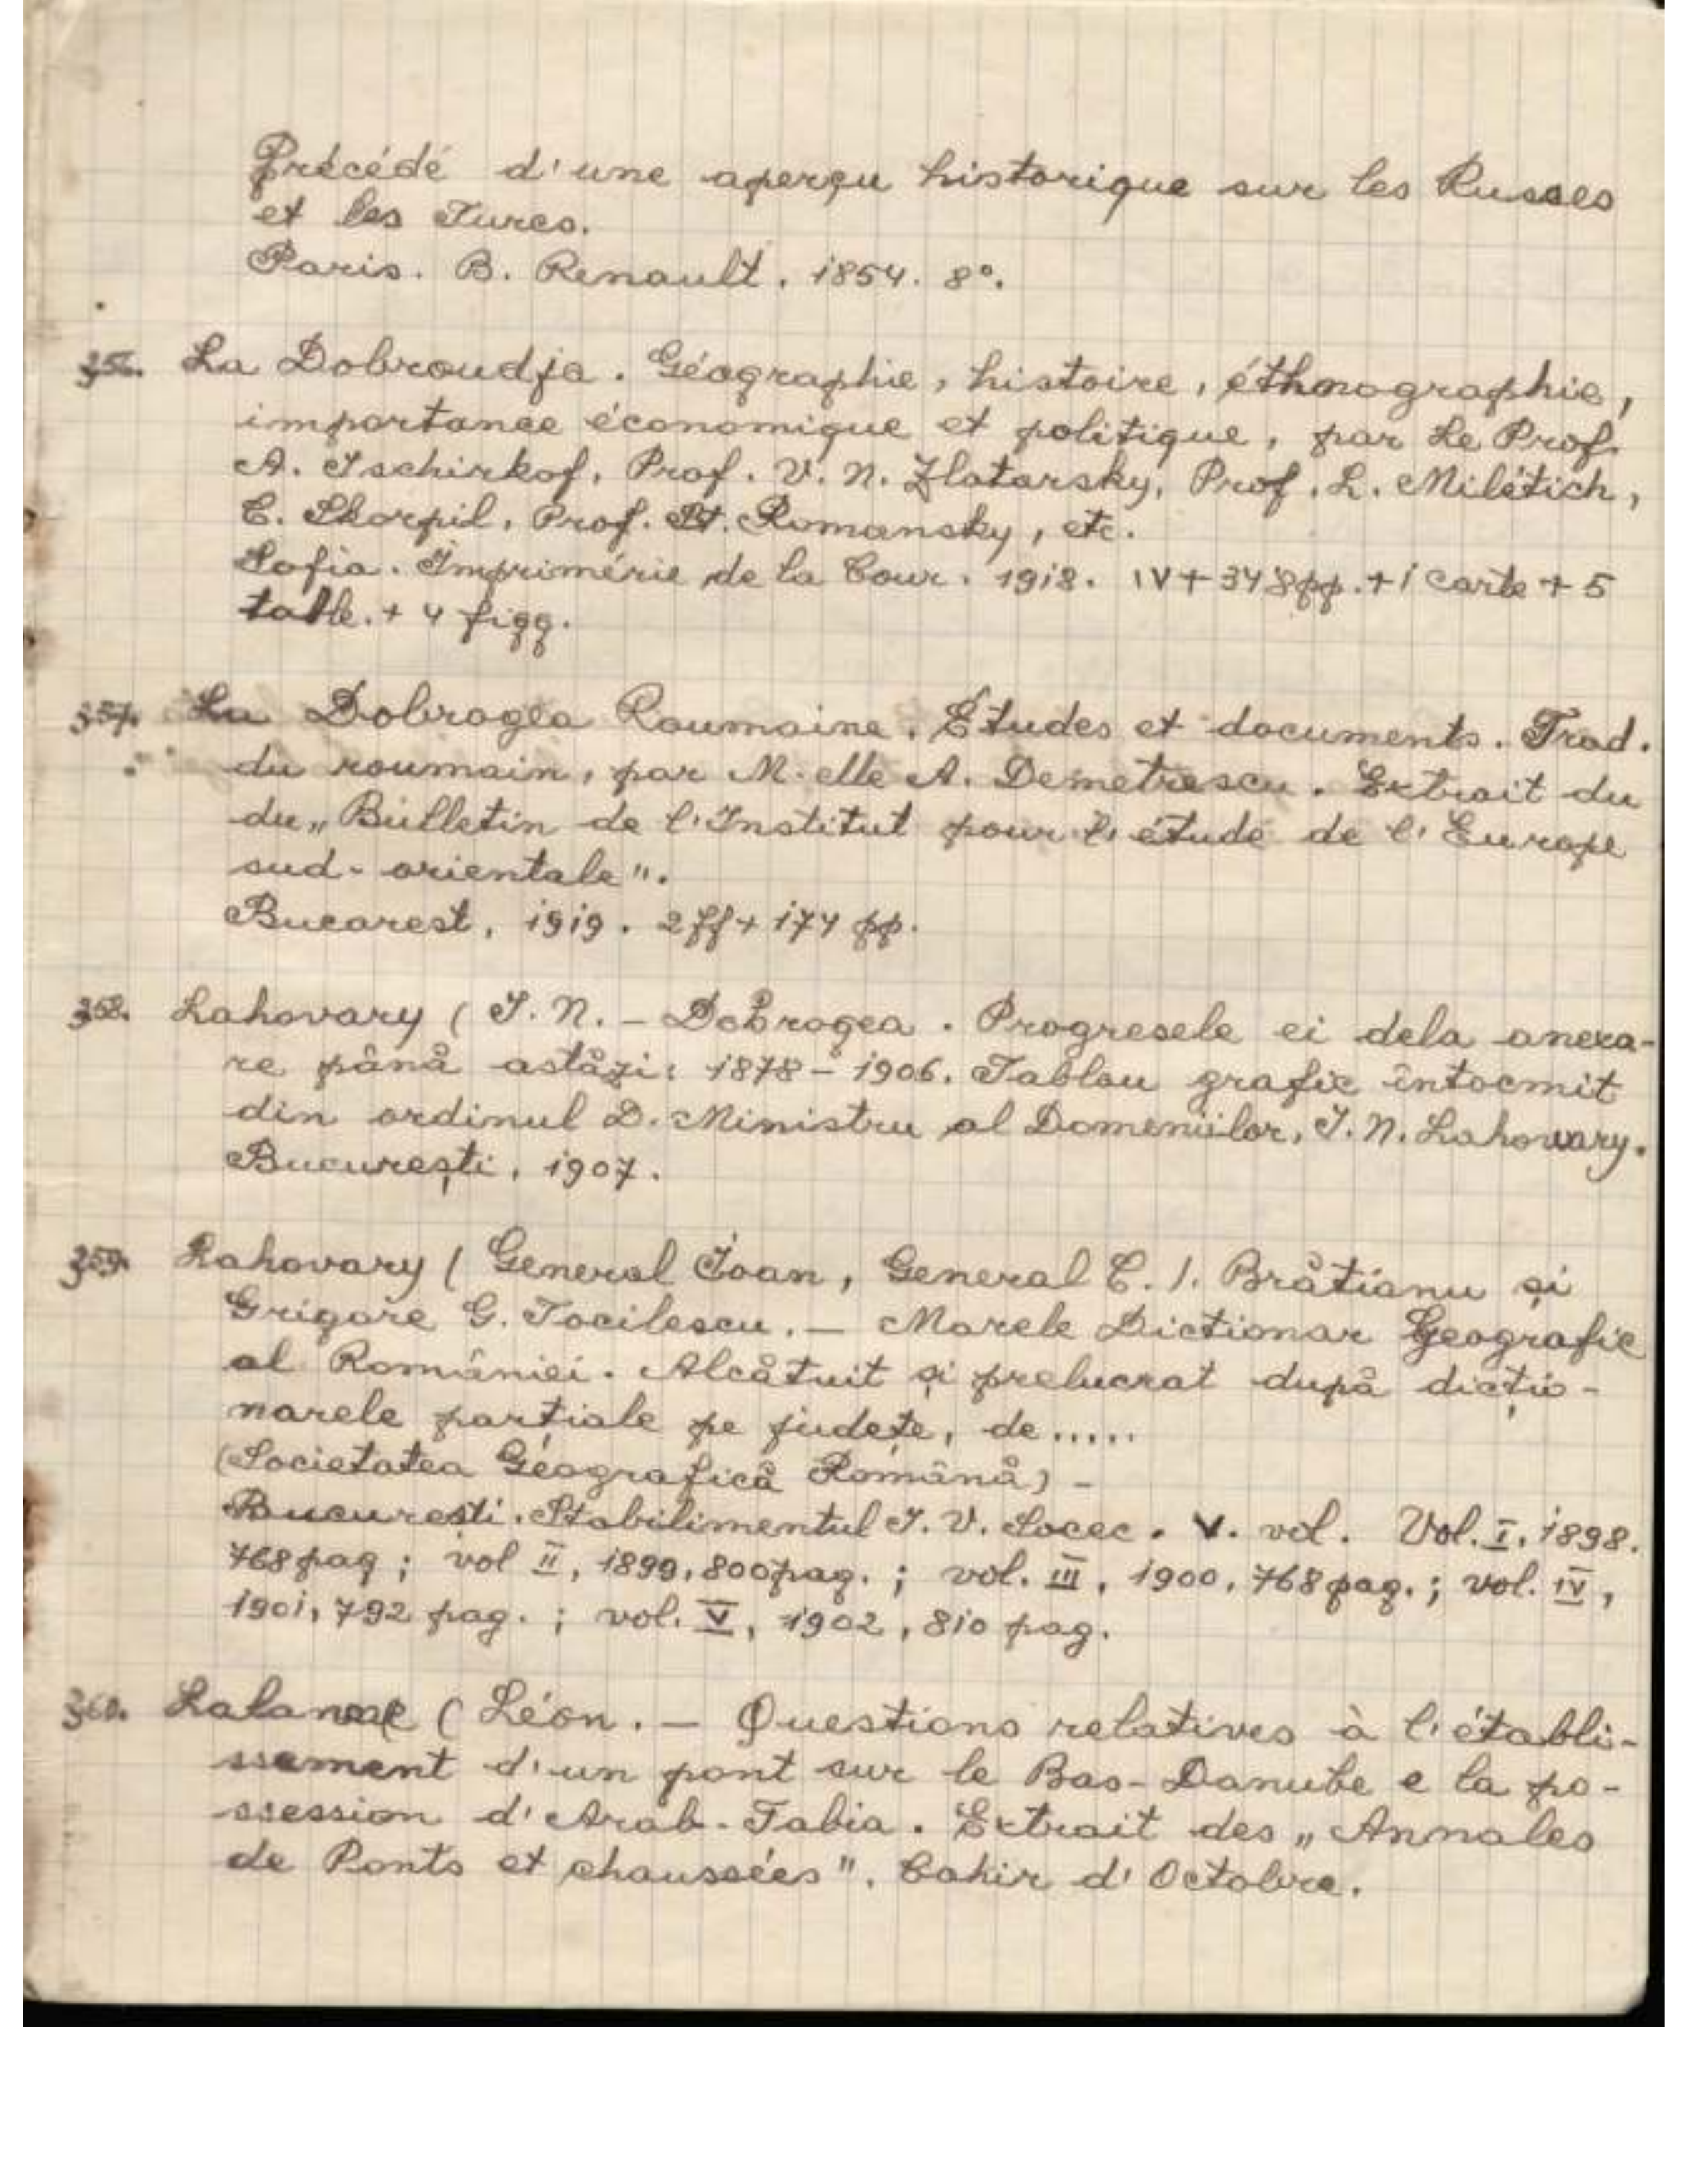 Précédé d'une aperçu historique sur les Russes
et les Turcs.
Paris. B. Renault. 1854. 8°.
356. La Dobroudja. Géographie, histoire, éthnographie,
importance économique et politique, par Le Prof.
A. Ischirkof, Prof. V. N. Zlatarsky, Prof. L. Milétich,
C. Skorpil, Prof. St. Romansky, etc.
Sofia. Imprimérie de la Cour. 1918. IV + 348 pp. + 1 carte + 5
tabll. + 4 figg.
357. La Dobrogea Roumaine. Études et documents. Trad.
du roumain, par M-elle A. Demetrescu. Extrait du
du „Bulletin de l'Institut pour l'étude de l'Europe
sud-orientale".
Bucarest, 1919. 2 ff + 174 pp.
358. Lahovary (I. N. – Dobrogea. Progresele ei dela anexa-
re până astăzi: 1878 – 1906. Tablou grafic întocmit
din ordinul D. Ministru al Domeniilor, I. N. Lahovary.
București, 1907.
359. Lahovary (General Ioan, General C. I. Brătianu și
Grigore G. Tocilescu. – Marele Dictionar Geografic
al României. Alcătuit și prelucrat după dicțio-
narele parțiale pe județe, de .....
(Societatea Géografică Română) –
București. Stabilimentul I. V. Socec. V. vol. Vol. I, 1898.
768 pag; vol II, 1899, 800 pag.; vol. III, 1900, 768 pag.; vol. IV,
1901, 792 pag.; vol. V, 1902, 810 pag.
360. (Léon. – Questions relatives à l'établi-
ssement d'un pont sur le Bas-Danube e la po-
ssession d'Arab-Tabia. Extrait des „Annales
de Ponts et chaussées". Cahir d'Octobre.